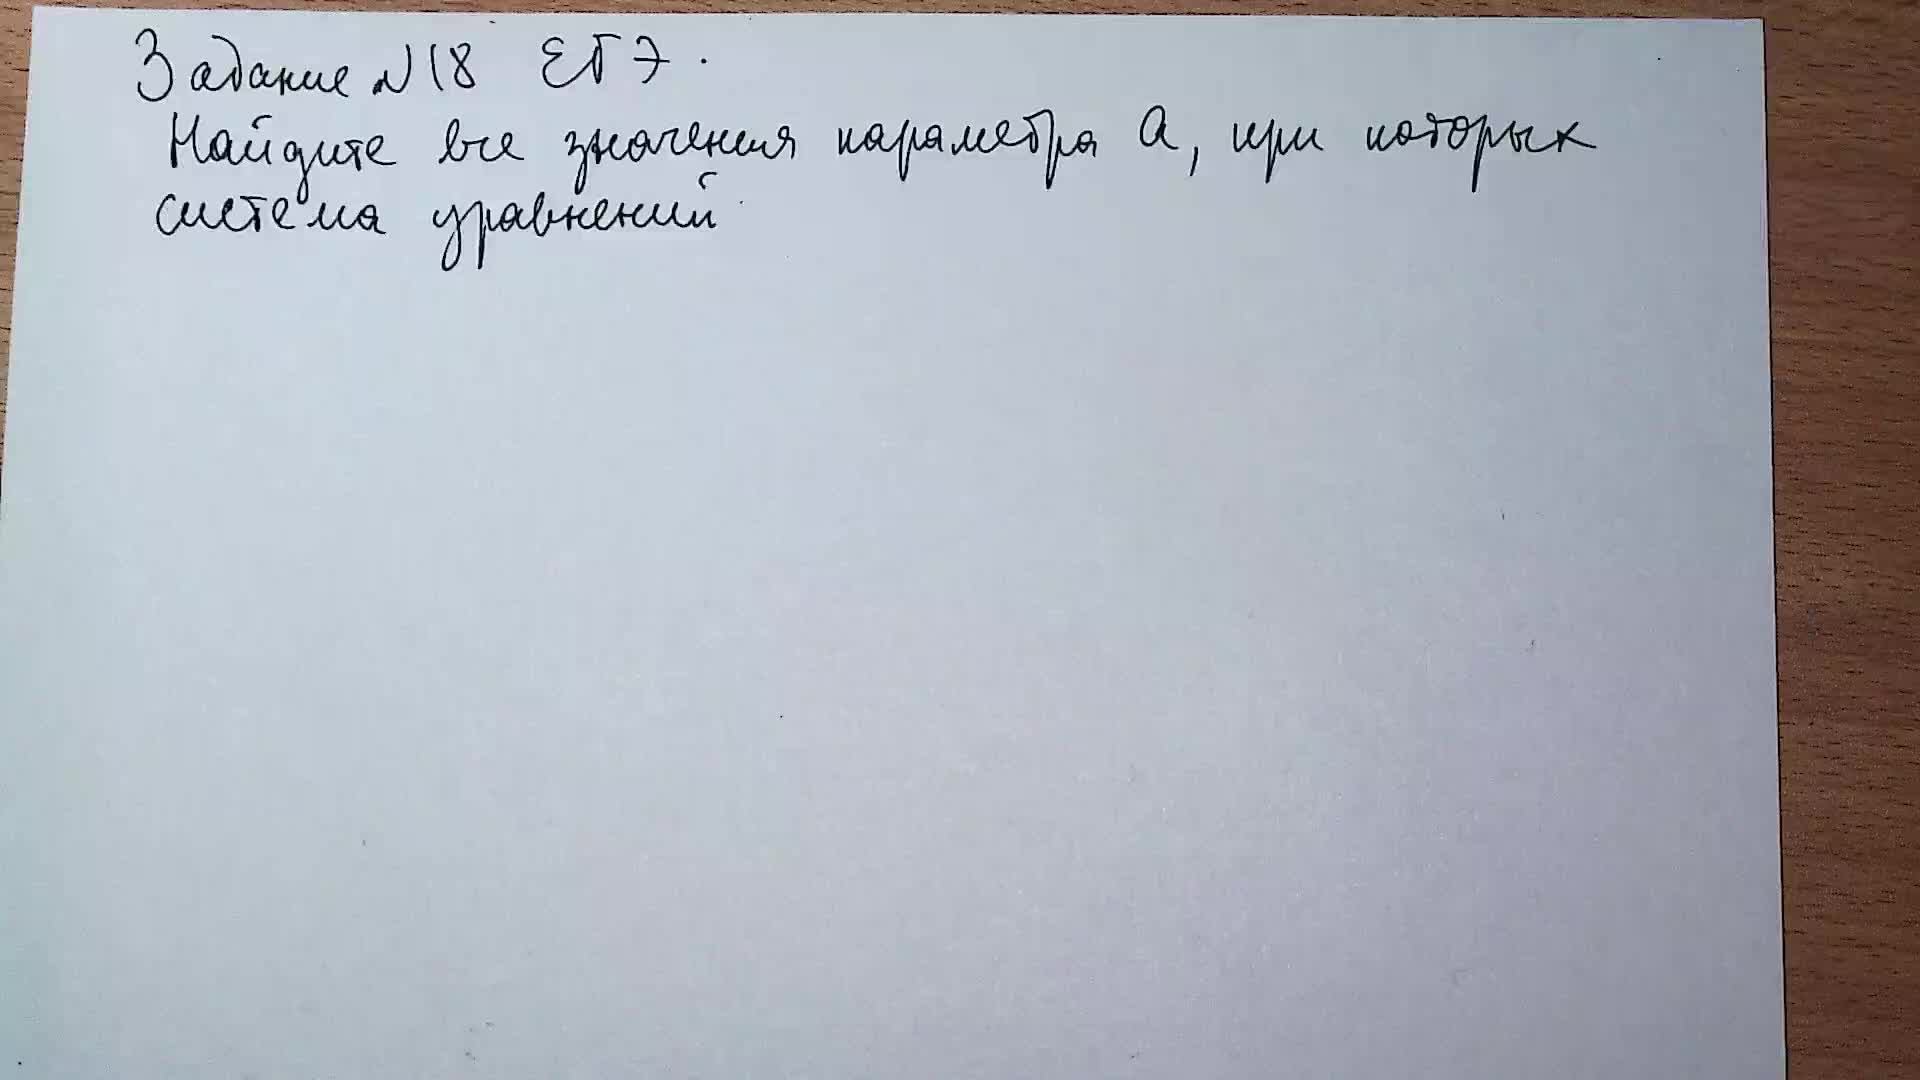 Задание №18 ЕГЭ.
Найдите все значения параметра а, при которых
система уравнений